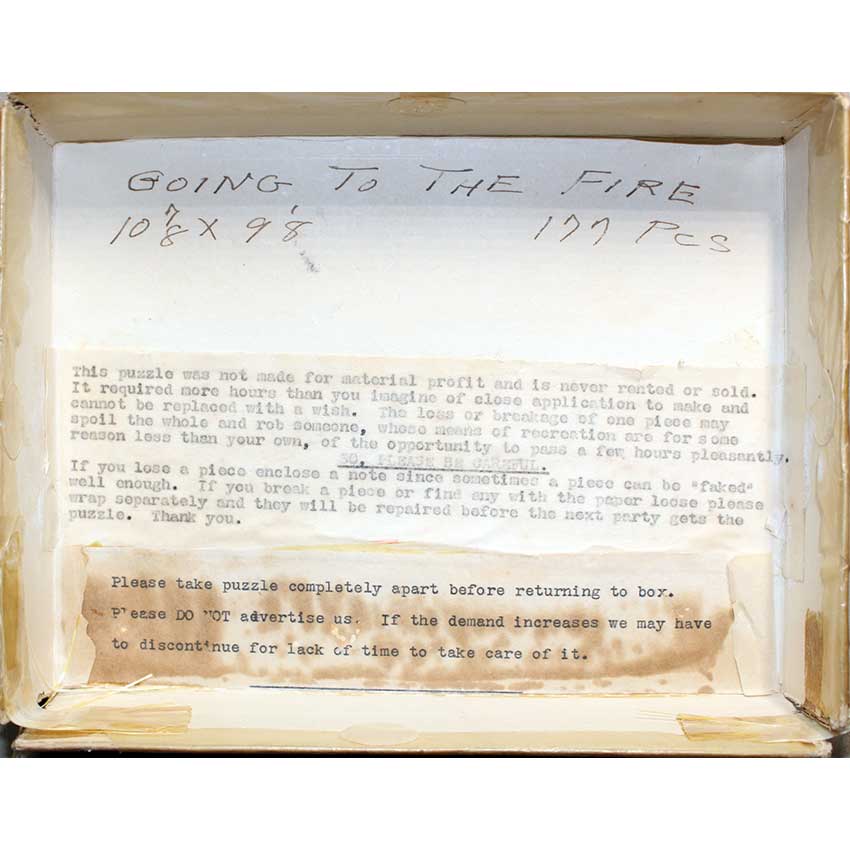 GOING TO THE FIRE
10 7/8 X 9 1/8 177 PCS
This puzzle was not made for material profit and is never rented or sold.
It required more hours than you imagine of close application to make and
cannot be replaced with a wish. The loss or breakage of one piece may
spoil the whole and rob someone, whose means of recreation are for some
reason less than your own, of the opportunity to pass a few hours pleasantly.
SO, PLEASE BE CAREFUL.
If you lose a piece enclose a note since sometimes a piece can be "faked"
well enough. If you break a piece or find any with the paper loose please
wrap separately and they will be repaired before the next party gets the
puzzle. Thank you.
Please take puzzle completely apart before returning to box.
Please DO NOT advertise us. If the demand increases we may have
to discontinue for lack of time to take care of it.